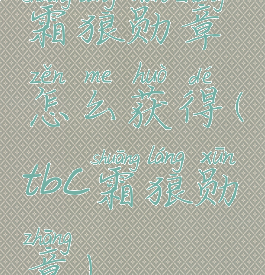 霜狼勋章
zěn me huò dé
怎么获得(
shuāng láng xūn
tbc霜狼勋
zhāng
章)